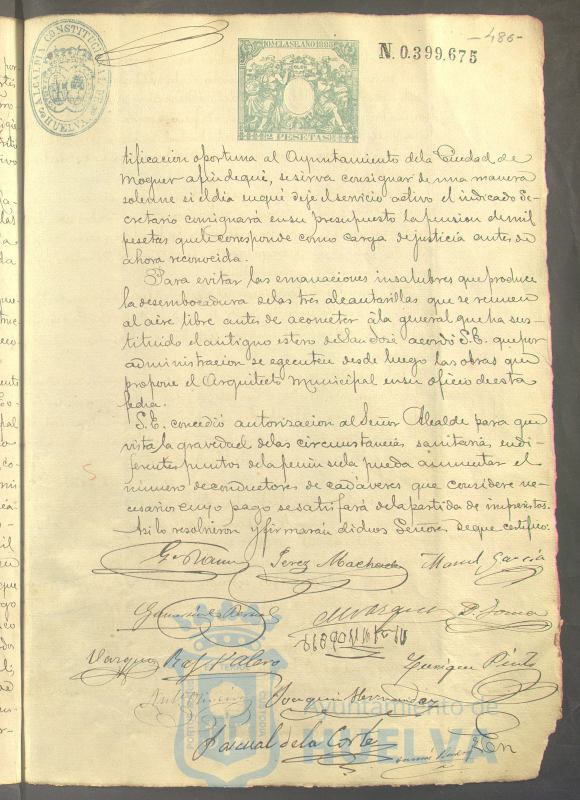 ALCALDIA CONSTITUCIONAL DE HUELVA
-486-
DOM. CLASE. AÑO 1885
2 PESETAS
N. 0.399.675
tificacion oportuna al Ayuntamiento dela Ciudad de
Moguer a fin deque, se sirva consignar de una manera
solemne si el dia enqué deje el servicio activo el indicado Se-
cretario consignará en su presupuesto la pension de mil
pesetas que le corresponde como carga de justicia antes de
ahora reconocida.
Para evitar las emanaciones insalubres que produce
la desembocadura delas tres alcantarillas que se reunen
al aire libre antes de acometer á la general que ha sus-
tituido el antiguo estero de San José, acordó S.E. que por
administracion se egecuten desde luego las obras que
propone el Arquitecto Municipal en su oficio de esta
fecha.
S.E. concedió autorizacion al Señor Alcalde para que
vista la gravedad delas circunstancias sanitarias en di-
ferentes puntos dela peninsula pueda aumentar el
número de conductores de cadáveres que considere ne-
cesarios cuyo pago se satisfará dela partida de imprevistos.
Asi lo resolvieron y firmarán dichos Señores de que certifico.
Perez Machado
Manl Garcia
Vazquez
Vazquez
Raf Valero
Enrique Pinto
Joaquin Hernandez
Pascual de la Corte
Ayuntamiento de
HUELVA